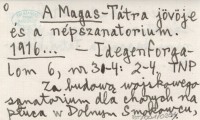 A Magas-Tátra jövője
és a népszanatorium.
1916... — Idegenforga-
lom 6, nr 3-4: 2-4 TNP
Za budową wojskowego
sanatorium dla chorych na
płuca w Dolnym Smokowcu.